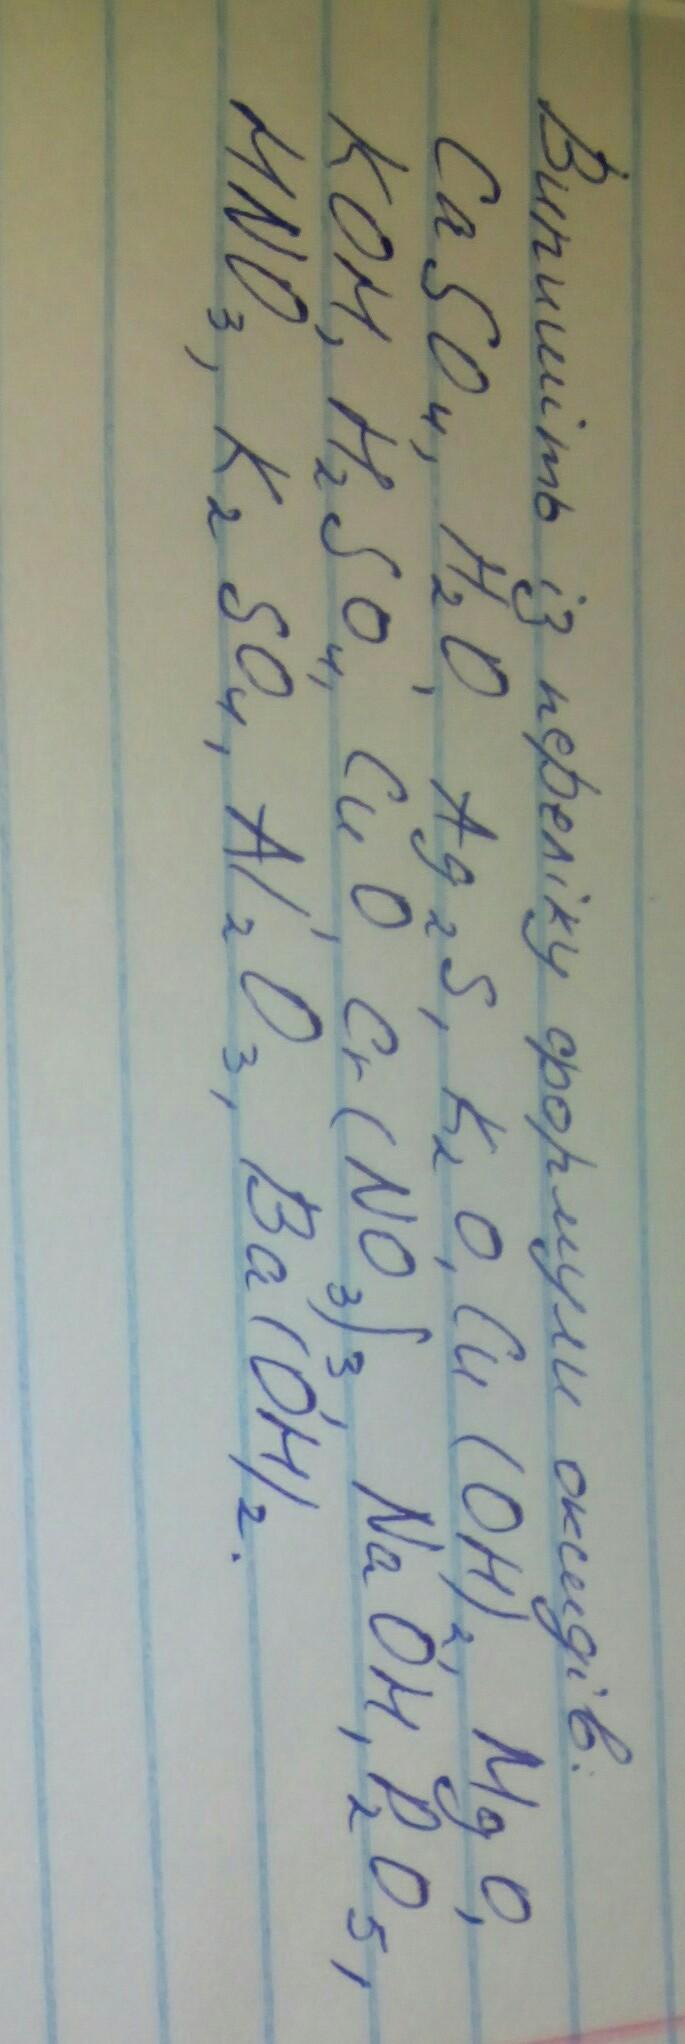 Випишіть із переліку формули оксидів:
CaSO₄, H₂O, Ag₂S, K₂O, Cu(OH)₂, MgO,
KOH, H₂SO₄, CuO, Cr(NO₃)₃, NaOH, P₂O₅,
HNO₃, K₂SO₄, Al₂O₃, Ba(OH)₂.